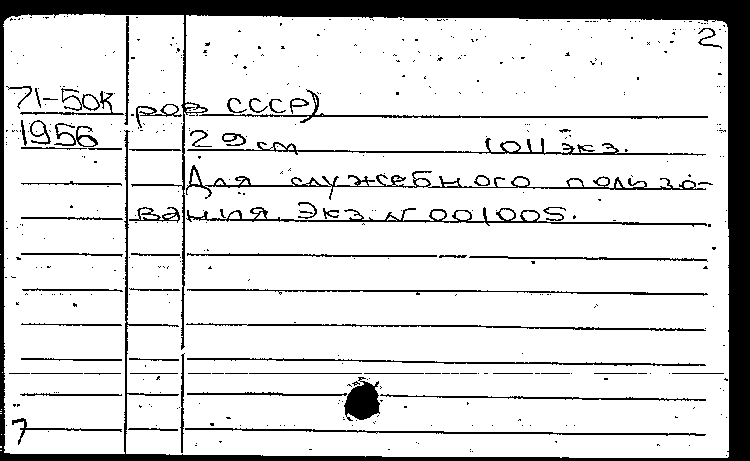 2
71-50К ров СССР)
1956 29 см 1011 экз.
Для служебного пользо-
вания. Экз. N 001005.
7